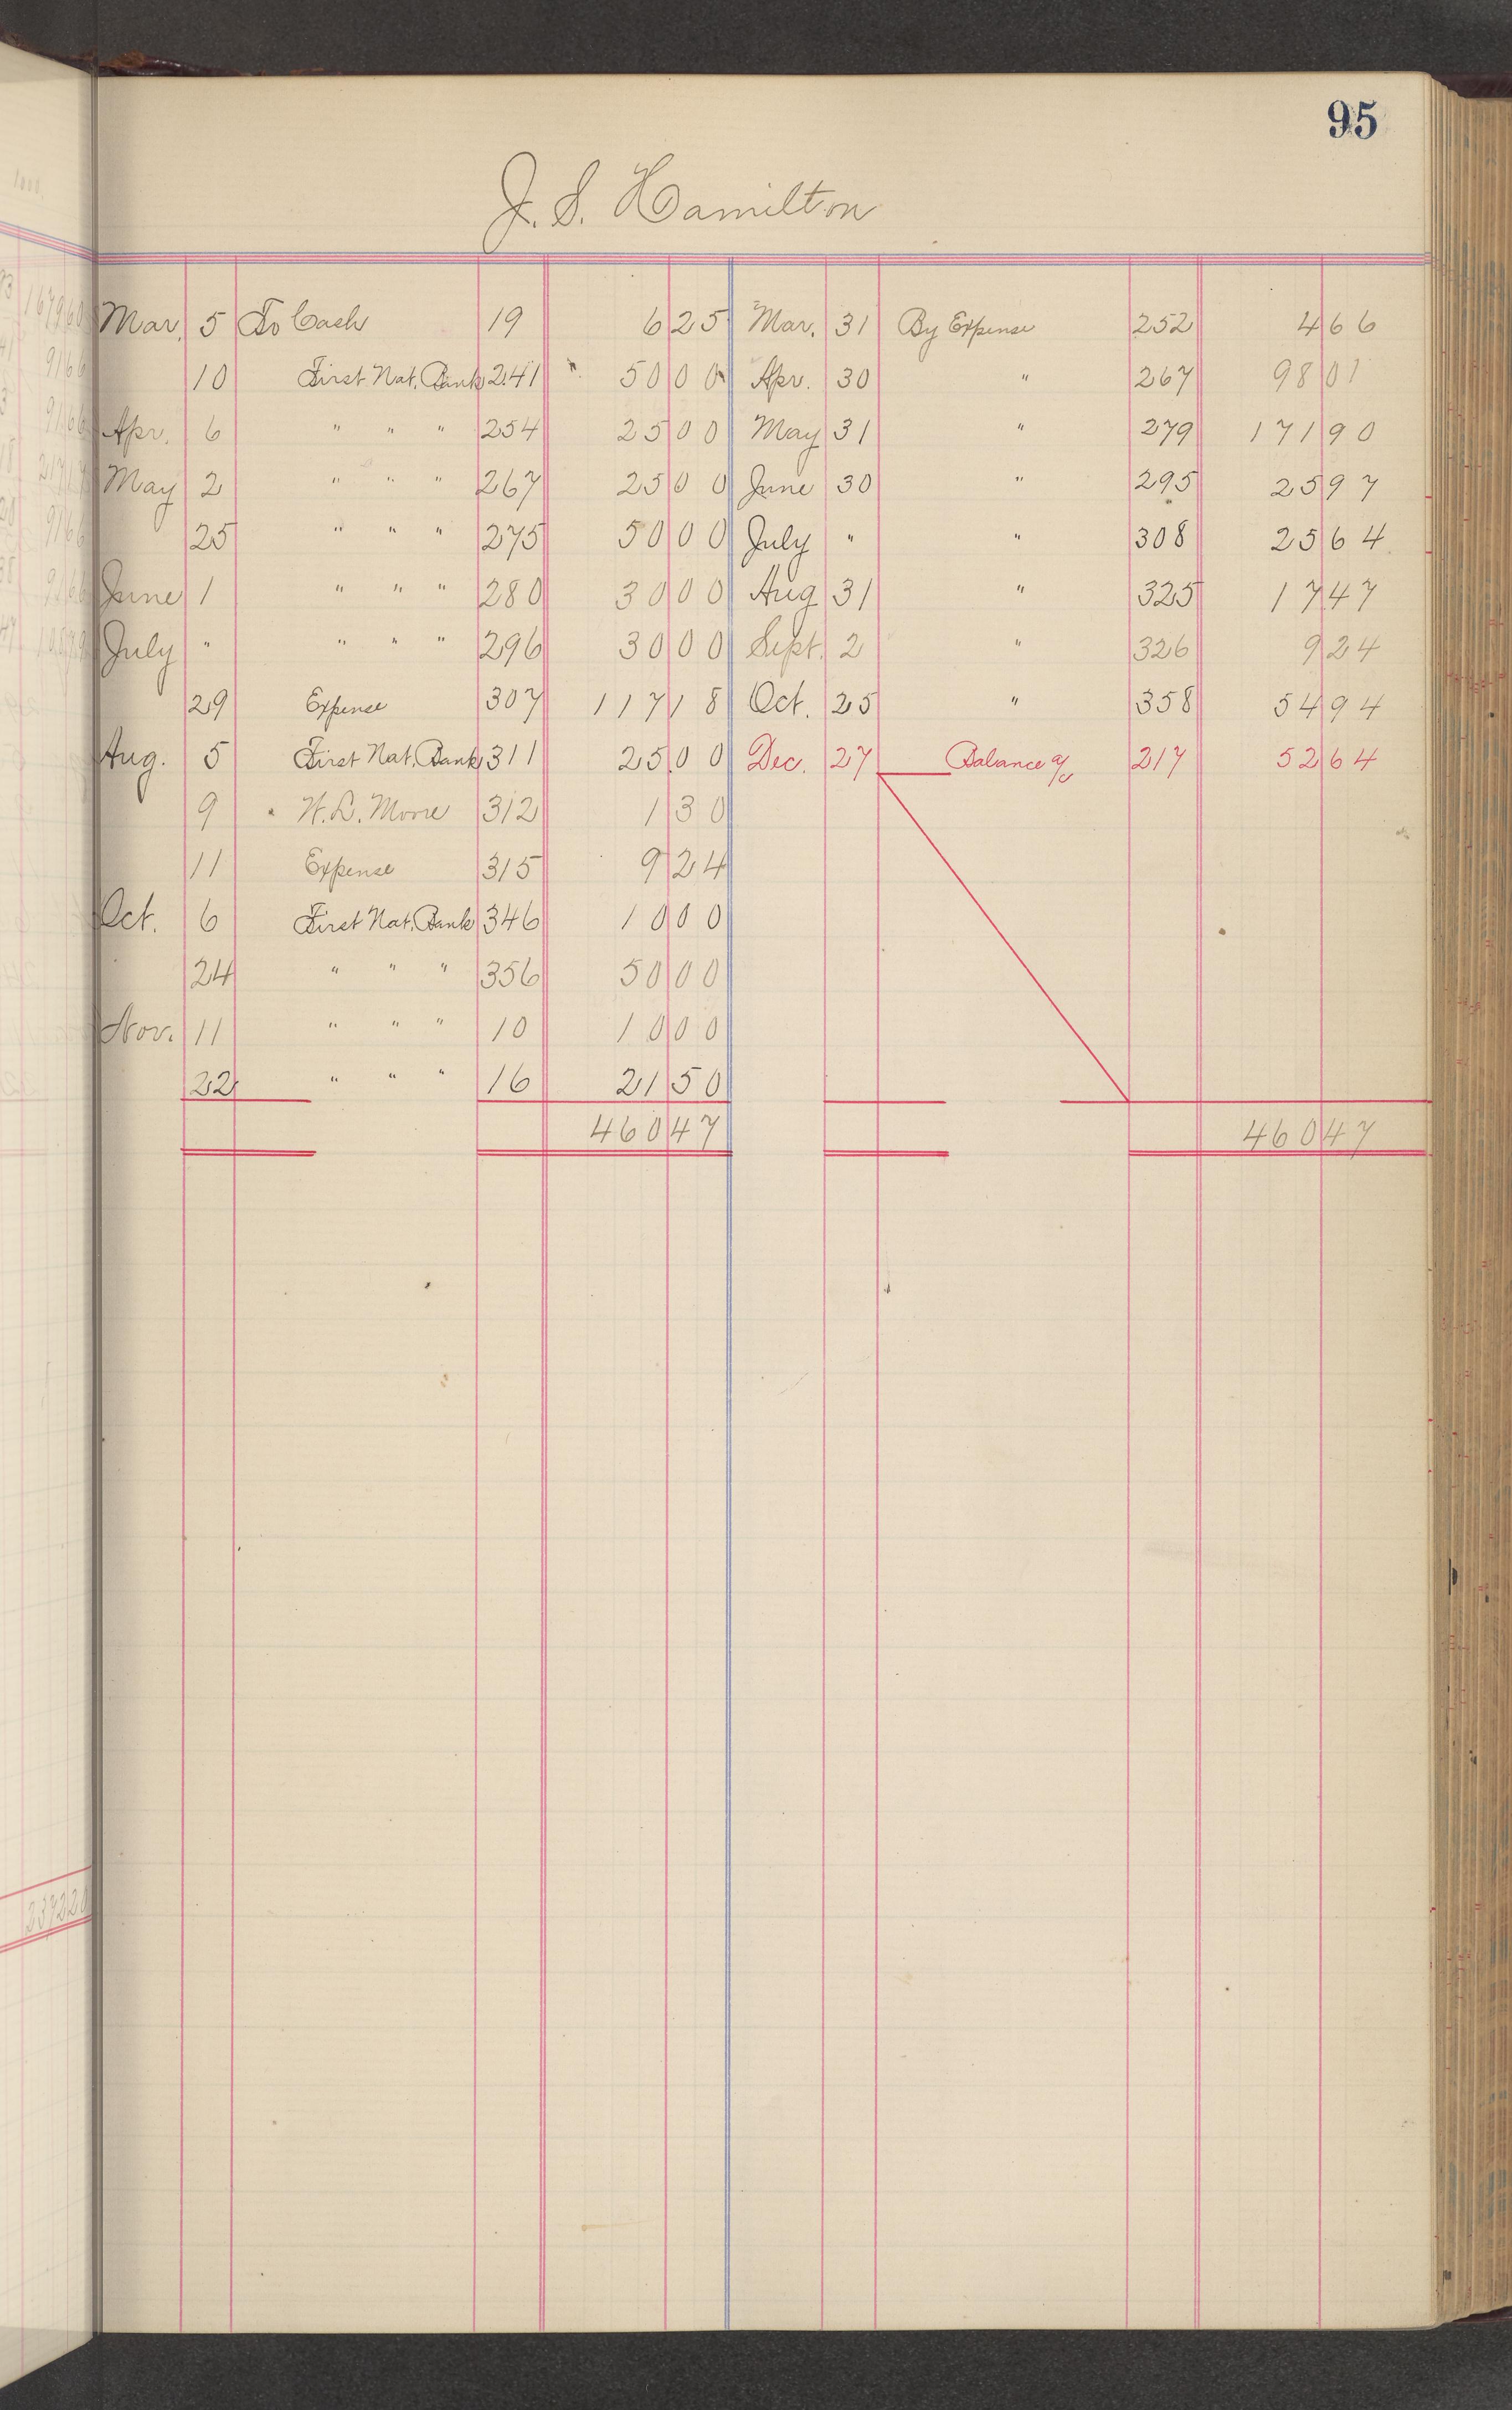 95
J. S. Hamilton
Mar. 5 To Cash 19 6 25 Mar. 31 By Expense 252 4 66
10 First Nat. Bank 241 50 00 Apr. 30 " 267 98 01
Apr. 6 " " " 254 25 00 May 31 " 279 171 90
May 2 " " " 267 25 00 June 30 " 295 25 97
25 " " " 275 50 00 July " " 308 25 64
June 1 " " " 280 30 00 Aug 31 " 325 17 47
July " " " " 296 30 00 Sept. 2 " 326 9 24
29 Expense 307 117 18 Oct. 25 " 358 54 94
Aug. 5 First Nat. Bank 311 25 00 Dec. 27 Balance a/c 217 52 64
9 W. L. Moore 312 1 30
11 Expense 315 9 24
Oct. 6 First Nat. Bank 346 10 00
24 " " " 356 50 00
Nov. 11 " " " 10 10 00
22 " " " 16 21 50
460 47 460 47